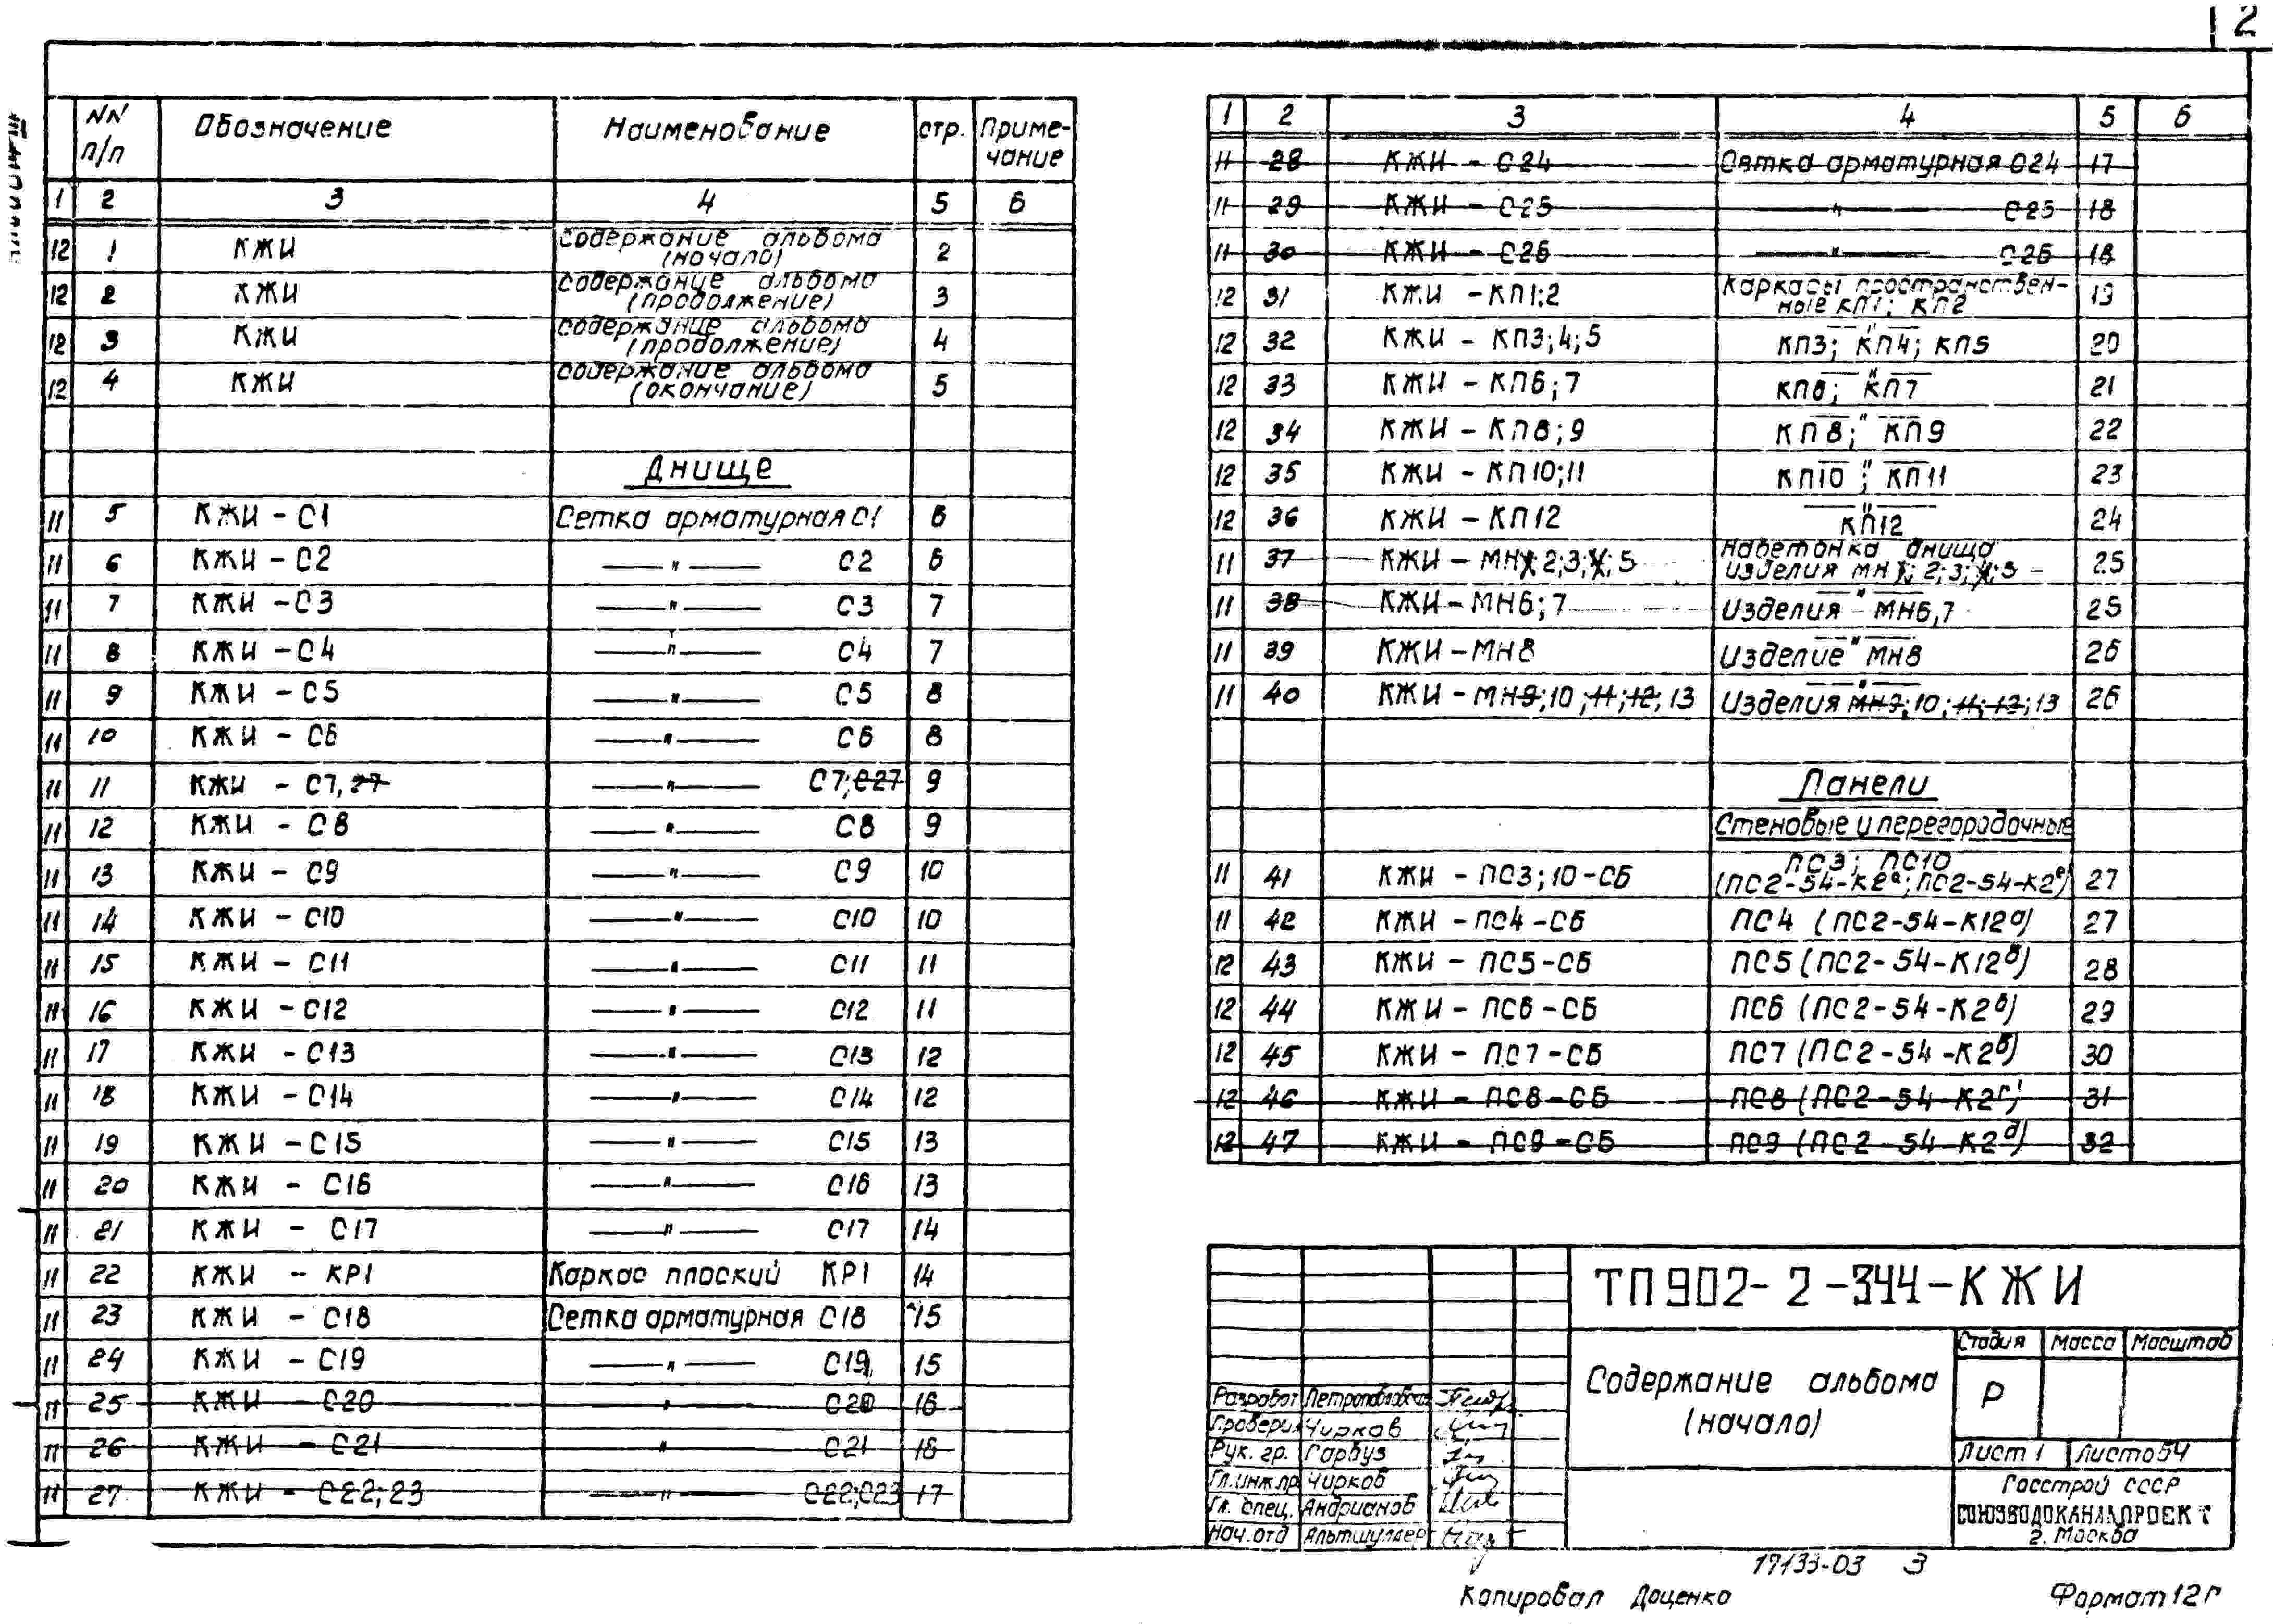 2
NN п/п Обозначение Наименование стр. Приме-чание
1 2 3 4 5 6
12 1 КЖИ Содержание альбома (начало) 2
12 2 КЖИ Содержание альбома (продолжение) 3
12 3 КЖИ Содержание альбома (продолжение) 4
12 4 КЖИ Содержание альбома (окончание) 5
Днище
11 5 КЖИ - С1 Сетка арматурная С1 6
11 6 КЖИ - С2 —"— С2 6
11 7 КЖИ - С3 —"— С3 7
11 8 КЖИ - С4 —"— С4 7
11 9 КЖИ - С5 —"— С5 8
11 10 КЖИ - С6 —"— С6 8
11 11 КЖИ - С7, 27 —"— С7; С27 9
11 12 КЖИ - С8 —"— С8 9
11 13 КЖИ - С9 —"— С9 10
11 14 КЖИ - С10 —"— С10 10
11 15 КЖИ - С11 —"— С11 11
11 16 КЖИ - С12 —"— С12 11
11 17 КЖИ - С13 —"— С13 12
11 18 КЖИ - С14 —"— С14 12
11 19 КЖИ - С15 —"— С15 13
11 20 КЖИ - С16 —"— С16 13
11 21 КЖИ - С17 —"— С17 14
11 22 КЖИ - КР1 Каркас плоский КР1 14
11 23 КЖИ - С18 Сетка арматурная С18 15
11 24 КЖИ - С19 —"— С19 15
11 25 КЖИ - С20 —"— С20 16
11 26 КЖИ - С21 —"— С21 16
11 27 КЖИ - С22; 23 —"— С22; С23 17
1 2 3 4 5 6
11 28 КЖИ - С24 Сетка арматурная С24 17
11 29 КЖИ - С25 —"— С25 18
11 30 КЖИ - С26 —"— С26 18
12 31 КЖИ - КП1;2 Каркасы пространствен-ные КП1; КП2 19
12 32 КЖИ - КП3;4;5 —"— КП3; КП4; КП5 20
12 33 КЖИ - КП6;7 —"— КП6; КП7 21
12 34 КЖИ - КП8;9 —"— КП8; КП9 22
12 35 КЖИ - КП10;11 —"— КП10; КП11 23
12 36 КЖИ - КП12 —"— КП12 24
11 37 КЖИ - МН1;2;3;4;5 Набетонка днища изделия МН1; 2;3;4;5 25
11 38 КЖИ - МН6;7 —"— Изделия МН6,7 25
11 39 КЖИ - МН8 —"— Изделие МН8 26
11 40 КЖИ - МН9;10;11;12;13 —"— Изделия МН9;10;11;12;13 26
Панели
Стеновые и перегородочные
11 41 КЖИ - ПС3;10-СБ ПС3; ПС10 (ПС2-54-К2а; ПС2-54-К2е) 27
11 42 КЖИ - ПС4-СБ ПС4 (ПС2-54-К12а) 27
12 43 КЖИ - ПС5-СБ ПС5 (ПС2-54-К12б) 28
12 44 КЖИ - ПС6-СБ ПС6 (ПС2-54-К2б) 29
12 45 КЖИ - ПС7-СБ ПС7 (ПС2-54-К2в) 30
12 46 КЖИ - ПС8-СБ ПС8 (ПС2-54-К2г) 31
12 47 КЖИ - ПС9-СБ ПС9 (ПС2-54-К2д) 32
ТП902-2-344-КЖИ
Содержание альбома (начало)
Стадия Масса Масштаб
Р
Лист 1 Листов 54
Госстрой СССР
СОЮЗВОДОКАНАЛПРОЕКТ
г. Москва
Разработ Петропавловская
Проверил Чирков
Рук. гр. Гарбуз
Гл.инж.пр Чирков
Гл. спец. Андрианов
Нач.отд Альтшуллер
17133-03 3
Копировал Доценко Формат 12г